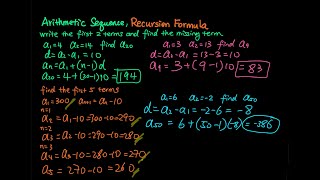 Arithmetic Sequence, Recursion Formula
write the first 2 terms and find the missing term
a₁=4 a₂=14 find a₂₀
d=a₂-a₁=14-4=10
aₙ=a₁+(n-1)d
a₂₀=4+(20-1)10=194
a₁=3 a₂=13 find a₉
d=a₂-a₁=13-3=10
a₉=3+(9-1)10=83
find the first 5 terms
a₁=300 aₙ₊₁=aₙ-10
n=1
a₂=a₁-10=300-10=290
n=2
a₃=a₂-10=290-10=280
n=3
a₄=a₃-10=280-10=270
a₅=270-10=260
a₁=6 a₂=-2 find a₅₀
d=a₂-a₁=-2-6=-8
a₅₀=6+(50-1)(-8)=-386